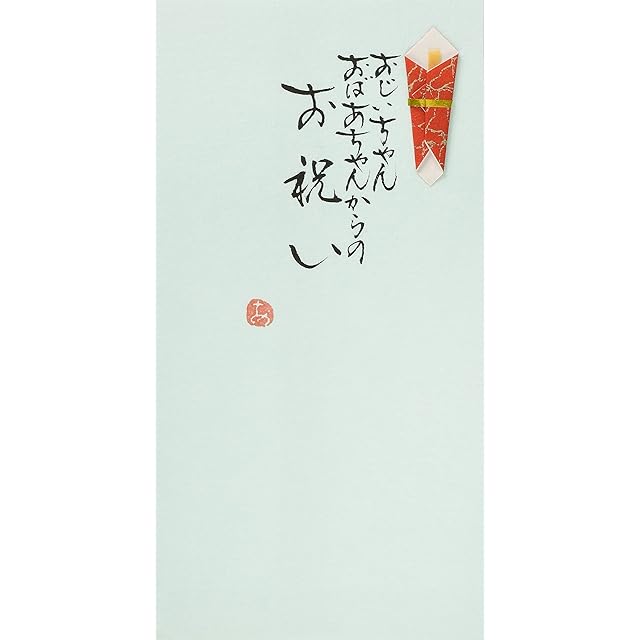 おじいちゃん
おばあちゃんからの
お祝い